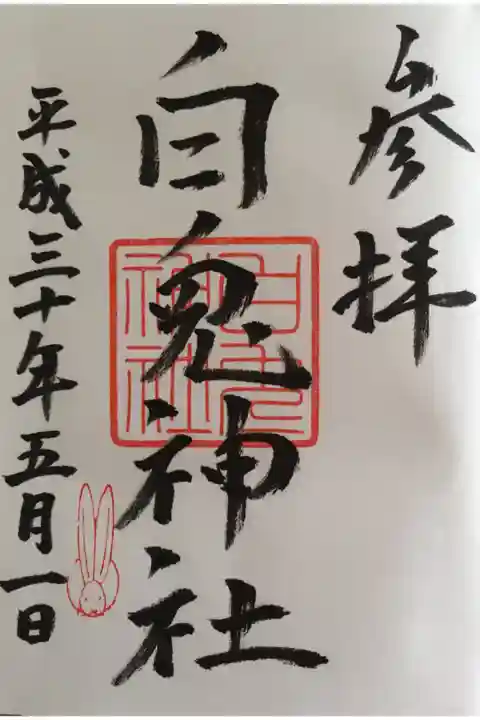 参拝
白兎神社
白兎
神社
平成三十年五月一日